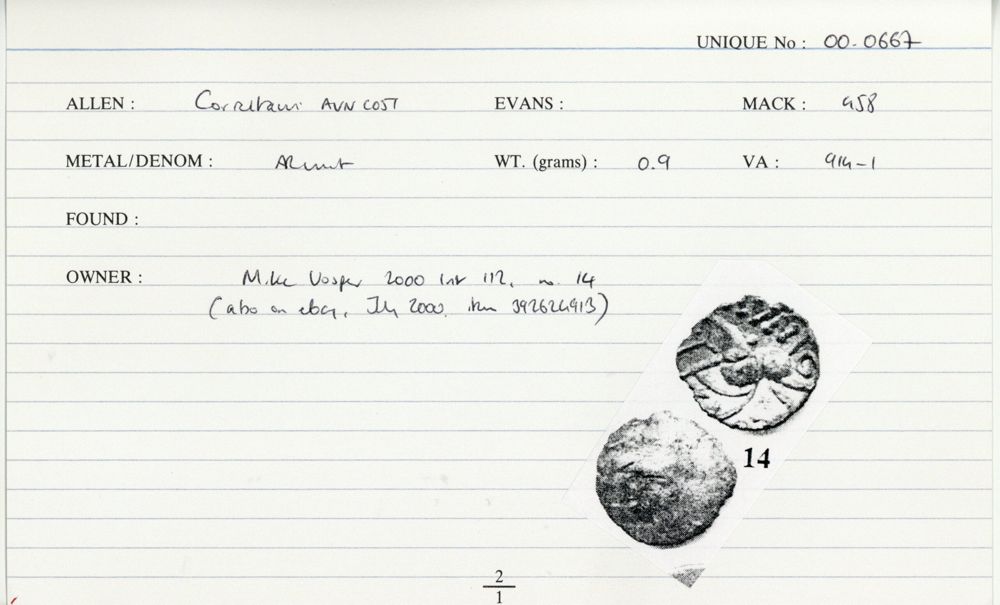 UNIQUE No : 00.0667
ALLEN : Corieltauvi AVN COST EVANS : MACK : 458
METAL/DENOM : AR unit WT. (grams) : 0.9 VA : 914-1
FOUND :
OWNER : Mike Vosper 2000 list 112, no. 14
(also on ebay, July 2000, item 392624913)
14
2
1